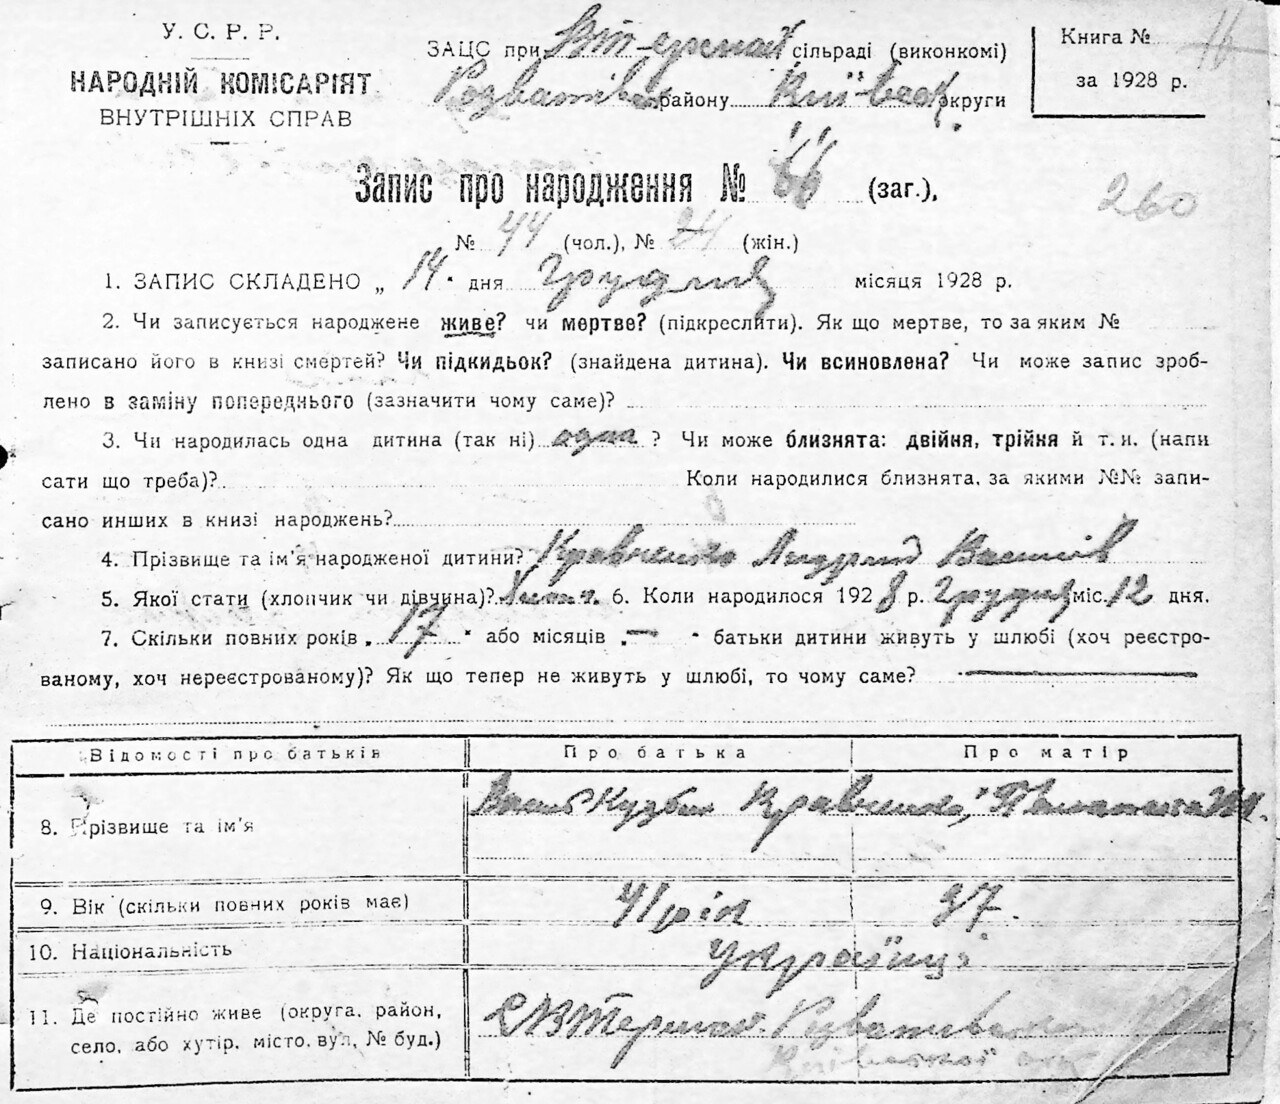 У. С. Р. Р.
НАРОДНІЙ КОМІСАРІЯТ
ВНУТРІШНІХ СПРАВ
ЗАЦС при сільраді (виконкомі)
району округи
Книга №
за 1928 р.
Запис про народження № 66 (заг.),
260
№ 44 (чол.), № (жін.)
1. ЗАПИС СКЛАДЕНО „ 14 " дня Грудня місяця 1928 р.
2. Чи записується народжене живе? чи мертве? (підкреслити). Як що мертве, то за яким №
записано його в книзі смертей? Чи підкидьок? (знайдена дитина). Чи всиновлена? Чи може запис зроб-
лено в заміну попереднього (зазначити чому саме)?
3. Чи народилась одна дитина (так ні) одна ? Чи може близнята: двійня, трійня й т. и. (напи
сати що треба)? Коли народилися близнята, за якими №№ запи-
сано инших в книзі народжень?
4. Прізвище та ім'я народженої дитини? Кравченко Андрій Василів
5. Якої стати (хлопчик чи дівчина)? 6. Коли народилося 192 8 р. Грудня міс. 12 дня.
7. Скільки повних років „ 17 " або місяців „ — " батьки дитини живуть у шлюбі (хоч реєстро-
ваному, хоч нереєстрованому)? Як що тепер не живуть у шлюбі, то чому саме?
Відомості про батьків Про батька Про матір
8. Прізвище та ім'я Кравченко,
9. Вік (скільки повних років має) 41 рік 37.
10. Національність Українці
11. Де постійно живе (округа, район,
село, або хутір, місто, вул, № буд.)